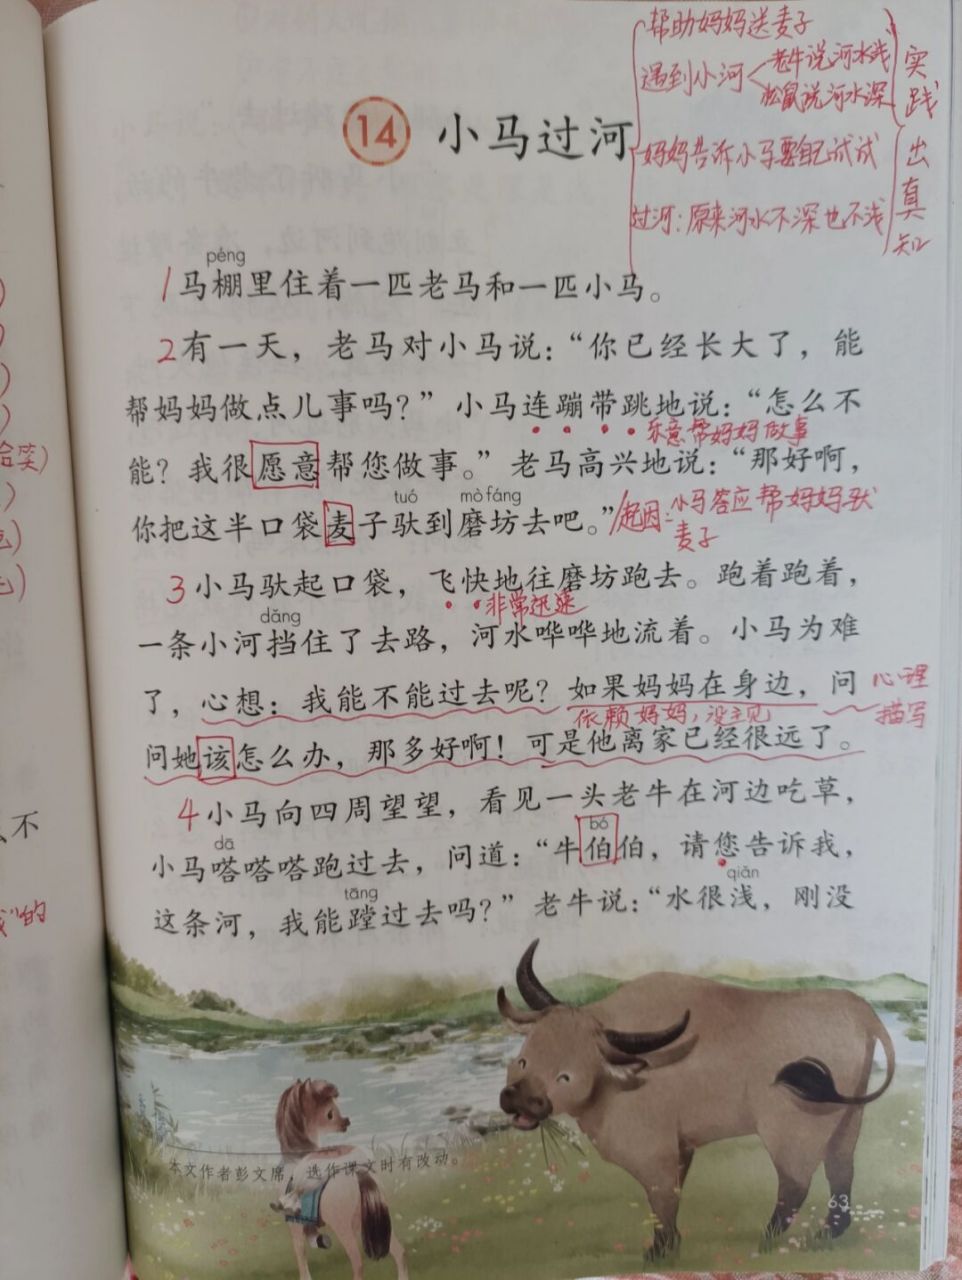 帮助妈妈送麦子
遇到小河
老牛说河水浅
松鼠说河水深
妈妈告诉小马要自己试试
过河：原来河水不深也不浅
实践出真知
14 小马过河
péng
1马棚里住着一匹老马和一匹小马。
2有一天，老马对小马说：“你已经长大了，能
帮妈妈做点儿事吗？”小马连蹦带跳地说：“怎么不
乐意帮妈妈做事
能？我很愿意帮您做事。”老马高兴地说：“那好啊，
tuó mò fáng
你把这半口袋麦子驮到磨坊去吧。”
起因：小马答应帮妈妈驮
麦子
3小马驮起口袋，飞快地往磨坊跑去。跑着跑着，
非常迅速
dǎng
一条小河挡住了去路，河水哗哗地流着。小马为难
了，心想：我能不能过去呢？如果妈妈在身边，问
心理
描写
依赖妈妈，没主见
问她该怎么办，那多好啊！可是他离家已经很远了。
4小马向四周望望，看见一头老牛在河边吃草，
dā bó
小马嗒嗒嗒跑过去，问道：“牛伯伯，请您告诉我，
tāng qiǎn
这条河，我能蹚过去吗？”老牛说：“水很浅，刚没
本文作者彭文席，选作课文时有改动。
63
不
的